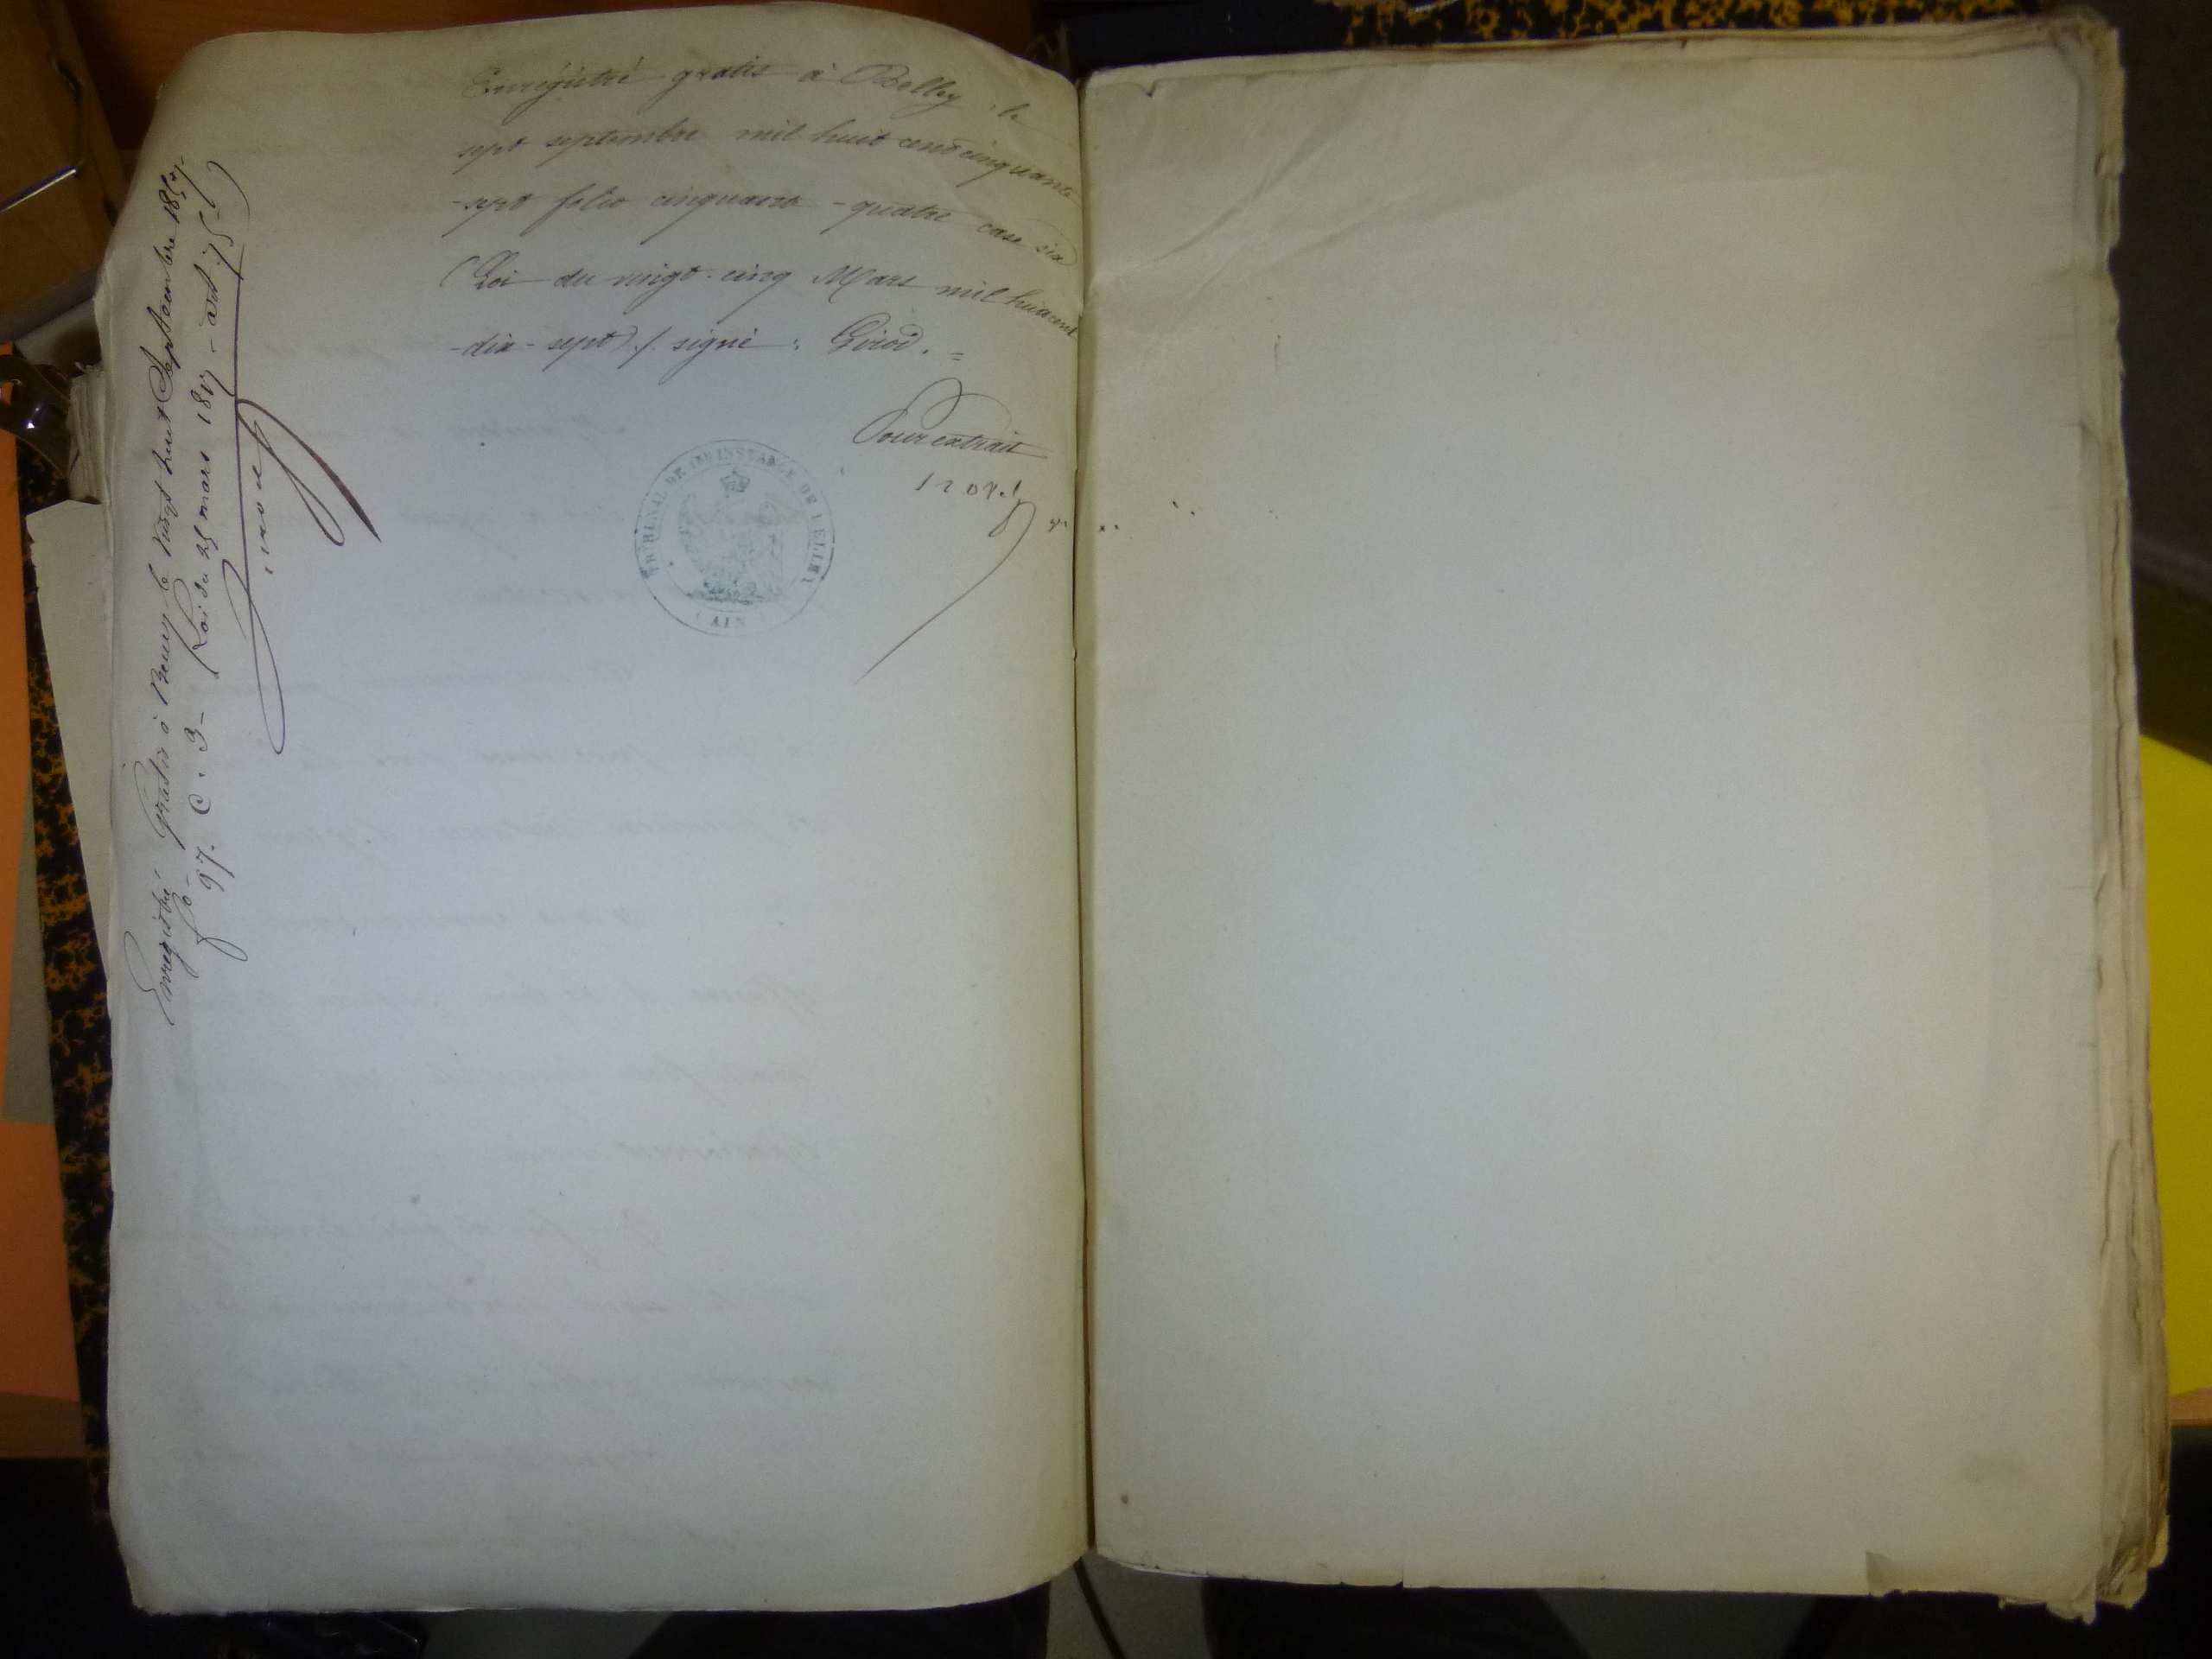 Enregistré gratis à Belley, le
sept septembre mil huit cent cinquante
-sept folio cinquante-quatre case six
(Loi du vingt-cinq Mars mil huit cent
-dix-sept)./. signé : Girod. =
Pour extrait
TRIBUNAL DE 1ERE INSTANCE DE BELLEY
(AIN)
Enregistré Gratis à le Vingt huit Septembre 1857-
fo- 97. C. 3- (Loi du 25 mars 1817 - art. 75-)